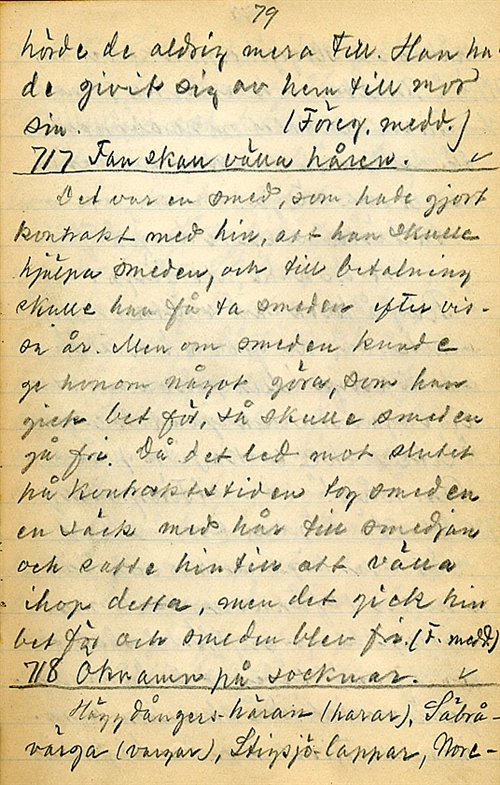 79
hörde de aldrig mera till. Han ha-
de givit sig av hem till mor
sin. (Föreg. medd.)
717 Fan skall välla håren.
Det var en smed, som hade gjort
kontrakt med hin, att han skulle
hjälpa smeden, och till betalning
skulle han få ta smeden efter vis-
sa år. Men om smeden kunde
ge honom något göra, som han
gick bet för, så skulle smeden
gå fri. Då det led mot slutet
på kontraktstiden tog smeden
en säck med hår till smedjan
och satte hin till att välla
ihop detta, men det gick hin
bet för och smeden blev fri. (F. medd.)
718 Öknamn på socknar.
Häggdångers-häran (harar), Säbrå-
värga (vargar), Stigsjö-lappar, Nore-